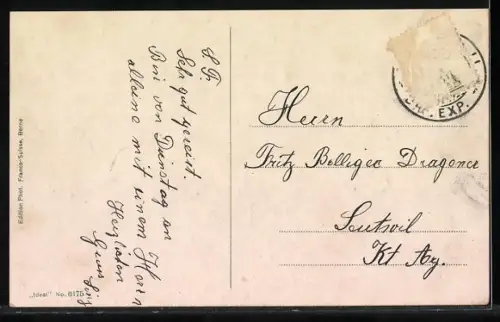 L. F.
Sehr gut gereist.
Bin von Dienstag an
alleine mit einem Herrn
Herzlichen
Gruss
Herrn
Fritz Bolliger Dragoner
Kt Ag.
EXP.
Edition Phot. Franco-Suisse, Berne
„Ideal" No. 6175